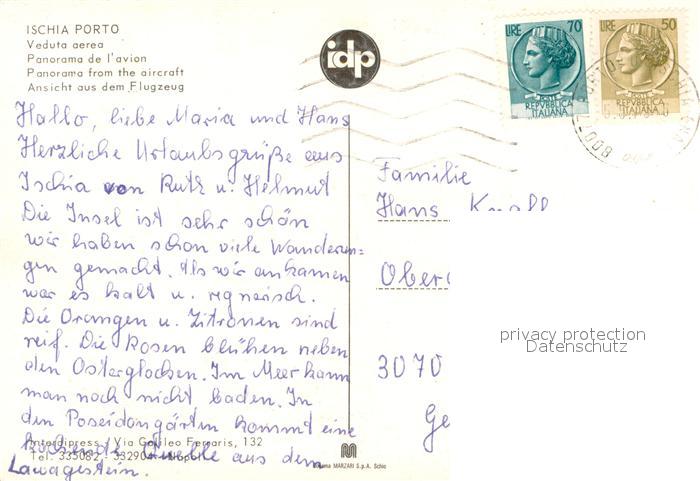 ISCHIA PORTO
Veduta aerea
Panorama de l'avion
Panorama from the aircraft
Ansicht aus dem Flugzeug
idp
LIRE 70
POSTE
REPVBBLICA
ITALIANA
LIRE 50
POSTE
REPVBBLICA
ITALIANA
Hallo, liebe Maria und Hans
Herzliche Urlaubsgrüße aus
Ischia von Ruth u. Helmut
Die Insel ist sehr schön
wir haben schon viele Wanderun=
gen gemacht. Als wir ankamen
war es kalt u. regnerisch.
Die Orangen u. Zitronen sind
reif. Die Rosen blühen neben
den Osterglocken. Im Meer kann
man noch nicht baden. In
den Poseidongärten kommt eine
kochende Quelle aus dem
Lavagestein.
Interdipress / Via Galileo Ferraris, 132
Tel. 335082 - 332904 - Napoli
MARZARI S.p.A. Schio
Familie
Hans
3070
privacy protection
Datenschutz